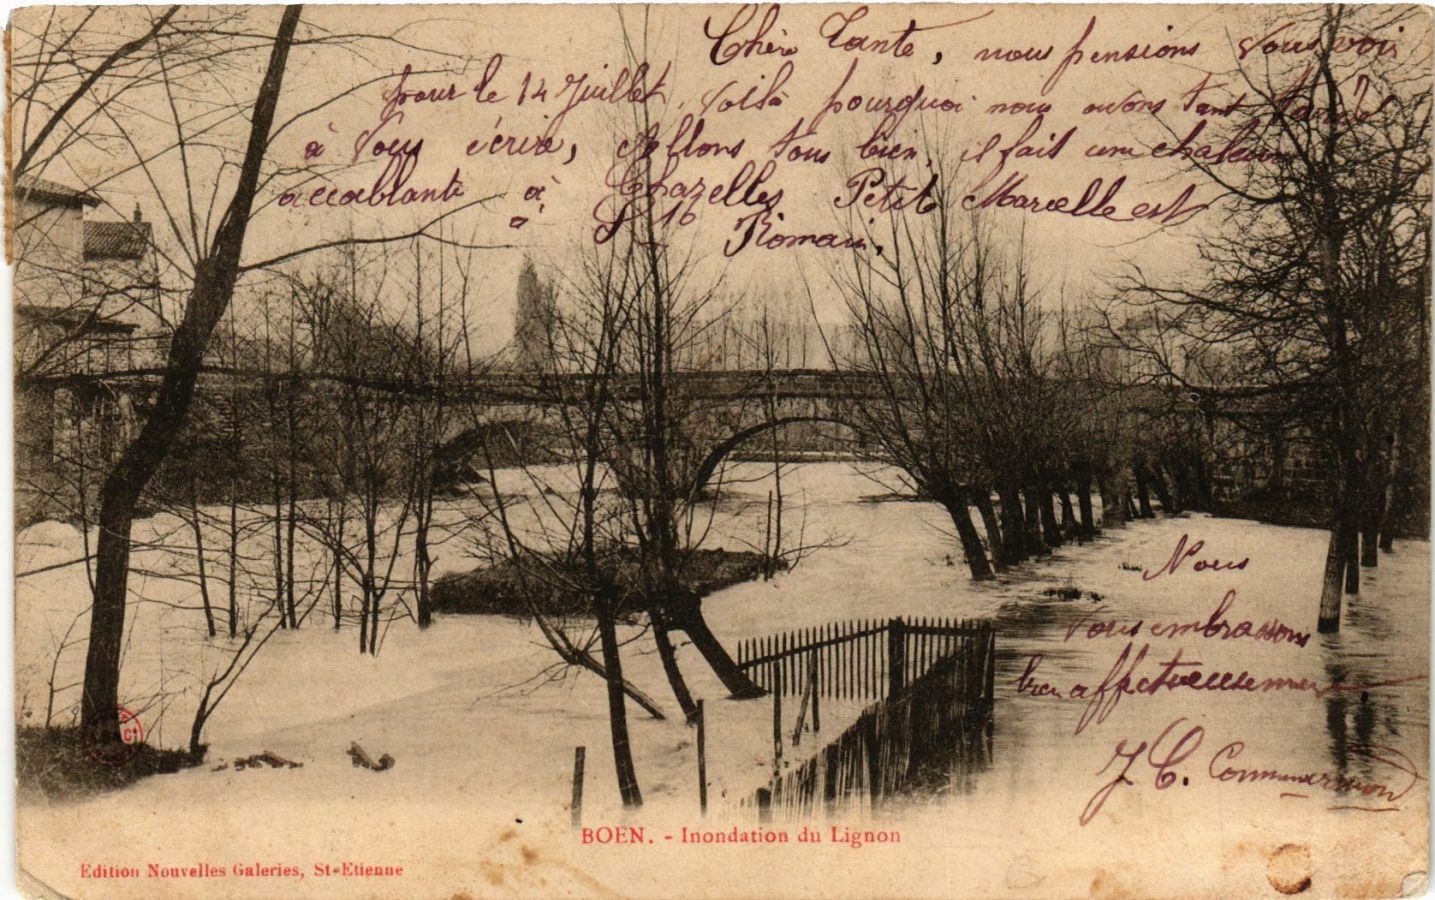 Chère Tante, nous pensions vous voir
pour le 14 Juillet, voilà pourquoi nous avons tant tardé
à Vous écrire, Allons tous bien, il fait une chaleur
accablante à Chazelles Petite Marcelle est
à St Romain,
Nous
vous embrassons
bien affectueusement
J C.
BOEN. - Inondation du Lignon
Edition Nouvelles Galeries, St-Etienne